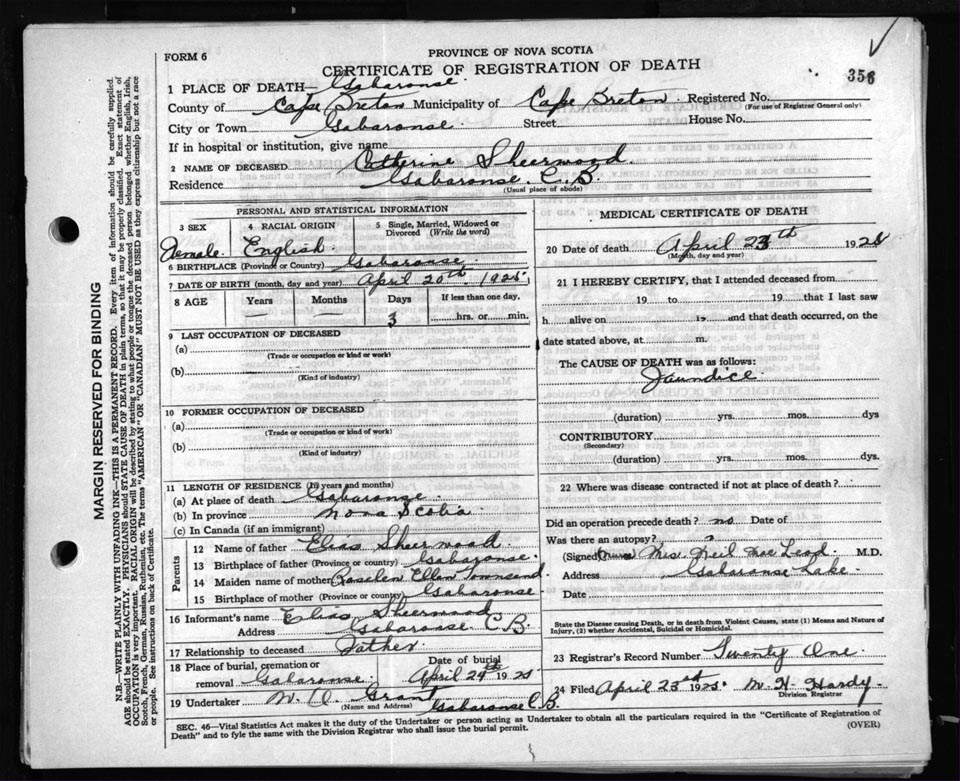 PROVINCE OF NOVA SCOTIA
FORM 6
CERTIFICATE OF REGISTRATION OF DEATH
356
1 PLACE OF DEATH Gabarouse
County of Cape Breton Municipality of Cape Breton Registered No.
(For use of Registrar General only)
City or Town Gabarouse Street House No.
If in hospital or institution, give name
2 NAME OF DECEASED Catherine Sheerwood.
Residence Gabarouse. C.B.
(Usual place of abode)
PERSONAL AND STATISTICAL INFORMATION
3 SEX
Female.
4 RACIAL ORIGIN
English
5 Single, Married, Widowed or Divorced (Write the word)
6 BIRTHPLACE (Province or Country) Gabarouse.
7 DATE OF BIRTH (month, day and year) April 20th 1925
8 AGE Years Months Days If less than one day,
— — 3 hrs. or min.
9 LAST OCCUPATION OF DECEASED
(a)
(Trade or occupation or kind or work)
(b)
(Kind of industry)
10 FORMER OCCUPATION OF DECEASED
(a)
(Trade or occupation or kind of work)
(b)
(Kind of industry)
11 LENGTH OF RESIDENCE (in years and months)
(a) At place of death Gabarouse.
(b) In province Nova Scotia
(c) In Canada (if an immigrant)
Parents
12 Name of father Elias Sheerwood.
13 Birthplace of father (Province or country) Gabarouse.
14 Maiden name of mother Ellen Townsend
15 Birthplace of mother (Province or country) Gabarouse
16 Informant's name Elias Sheerwood
Address Gabarouse C B.
17 Relationship to deceased Father
18 Place of burial, cremation or removal Gabarouse. Date of burial April 24th 1925
19 Undertaker W. A. Grant Gabarouse C.B.
(Name and Address)
MEDICAL CERTIFICATE OF DEATH
20 Date of death April 23th 1925
(Month, day and year)
21 I HEREBY CERTIFY, that I attended deceased from
19 to 19 that I last saw
h alive on 19 and that death occurred, on the
date stated above, at m.
The CAUSE OF DEATH was as follows:
Jaundice.
(duration) yrs. mos. dys
CONTRIBUTORY
(Secondary)
(duration) yrs. mos. dys.
22 Where was disease contracted if not at place of death?
Did an operation precede death? no Date of
Was there an autopsy?
(Signed) Mrs. Neil Mac Leod M.D.
Address Gabarouse Lake.
Date
State the Disease causing Death, or in death from Violent Causes, state (1) Means and Nature of Injury, (2) whether Accidental, Suicidal or Homicidal.
23 Registrar's Record Number Twenty One
24 Filed April 25th 1925. M. H. Hardy
Division Registrar
SEC. 46—Vital Statistics Act makes it the duty of the Undertaker or person acting as Undertaker to obtain all the particulars required in the "Certificate of Registration of
Death" and to fyle the same with the Division Registrar who shall issue the burial permit.
(OVER)
MARGIN RESERVED FOR BINDING
N.B.—WRITE PLAINLY WITH UNFADING INK—THIS IS A PERMANENT RECORD. Every item of information should be carefully supplied.
AGE should be stated EXACTLY. PHYSICIANS should STATE CAUSE OF DEATH in plain terms, so that it may be properly classified. Exact statement of
OCCUPATION is very important. RACIAL ORIGIN will be described by stating to what people or tongue the deceased person belonged, whether English, Irish,
Scotch, French, German, Russian, Ruthenian, etc. The terms "AMERICAN" OR "CANADIAN" MUST NOT BE USED as they express citizenship but not a race
or people. See instructions on back of Certificate.